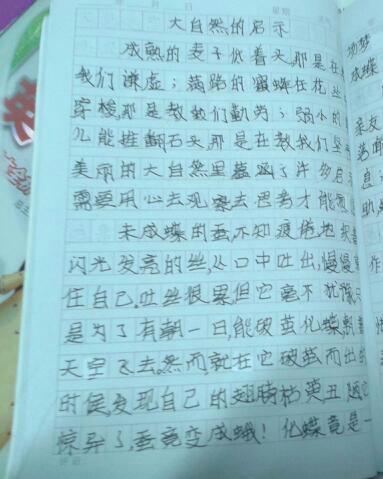 大自然的启示
成熟的麦子低着头,那是在
我们谦虚；满路的蜜蜂在花丛
穿梭,那是教我们勤劳；弱小的
儿能推翻石头,那是在教我们坚
美丽的大自然里蕴涵了许多启
需要用心去观察去思考才能
未成蝶的蚕,不知疲倦地
闪光发亮的丝,从口中吐出,慢慢
住自己.吐丝很累,但它毫不犹豫
是为了有朝一日,能破茧化蝶,朝
天空飞去.然而就在它破茧而出的
时候,发现自己的翅膀枯萎丑陋它
惊异了,蚕竟变成蛾！化蝶竟是一
梦
成蝶
亲友